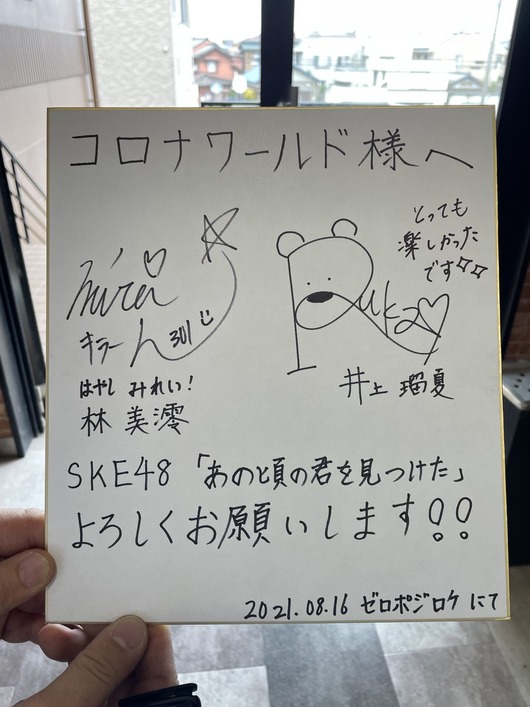 コロナワールド様へ
mirei♡☆
キラーん 301
はやし みれい!
林 美澪
とっても
楽しかった
です☆☆
Ruka♡
井上 瑠夏
SKE48「あの頃の君を見つけた」
よろしくお願いします!!
2021.08.16 ゼロポジロケにて